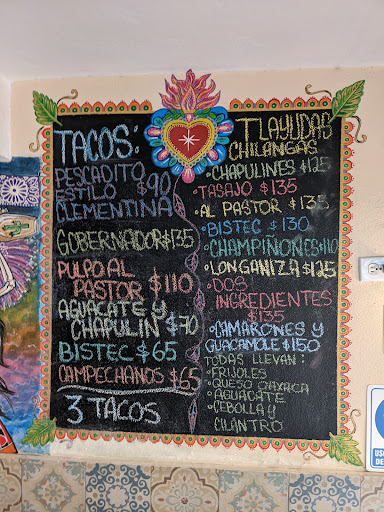 TACOS:
PESCADITO
ESTILO $90
CLEMENTINA
GOBERNADOR $135
PULPO AL
PASTOR $110
AGUACATE Y
CHAPULIN $70
BISTEC $65
CAMPECHANOS $65
3 TACOS
TLAYUDAS
CHILANGAS
•CHAPULINES $125
TASAJO $135
•AL PASTOR $135
•BISTEC $130
•CHAMPIÑONES $110
•LONGANIZA $125
•DOS
INGREDIENTES
$135
•CAMARONES Y
GUACAMOLE $150
TODAS LLEVAN:
•FRIJOLES
•QUESO OAXACA
•AGUACATE
•CEBOLLA Y
CILANTRO